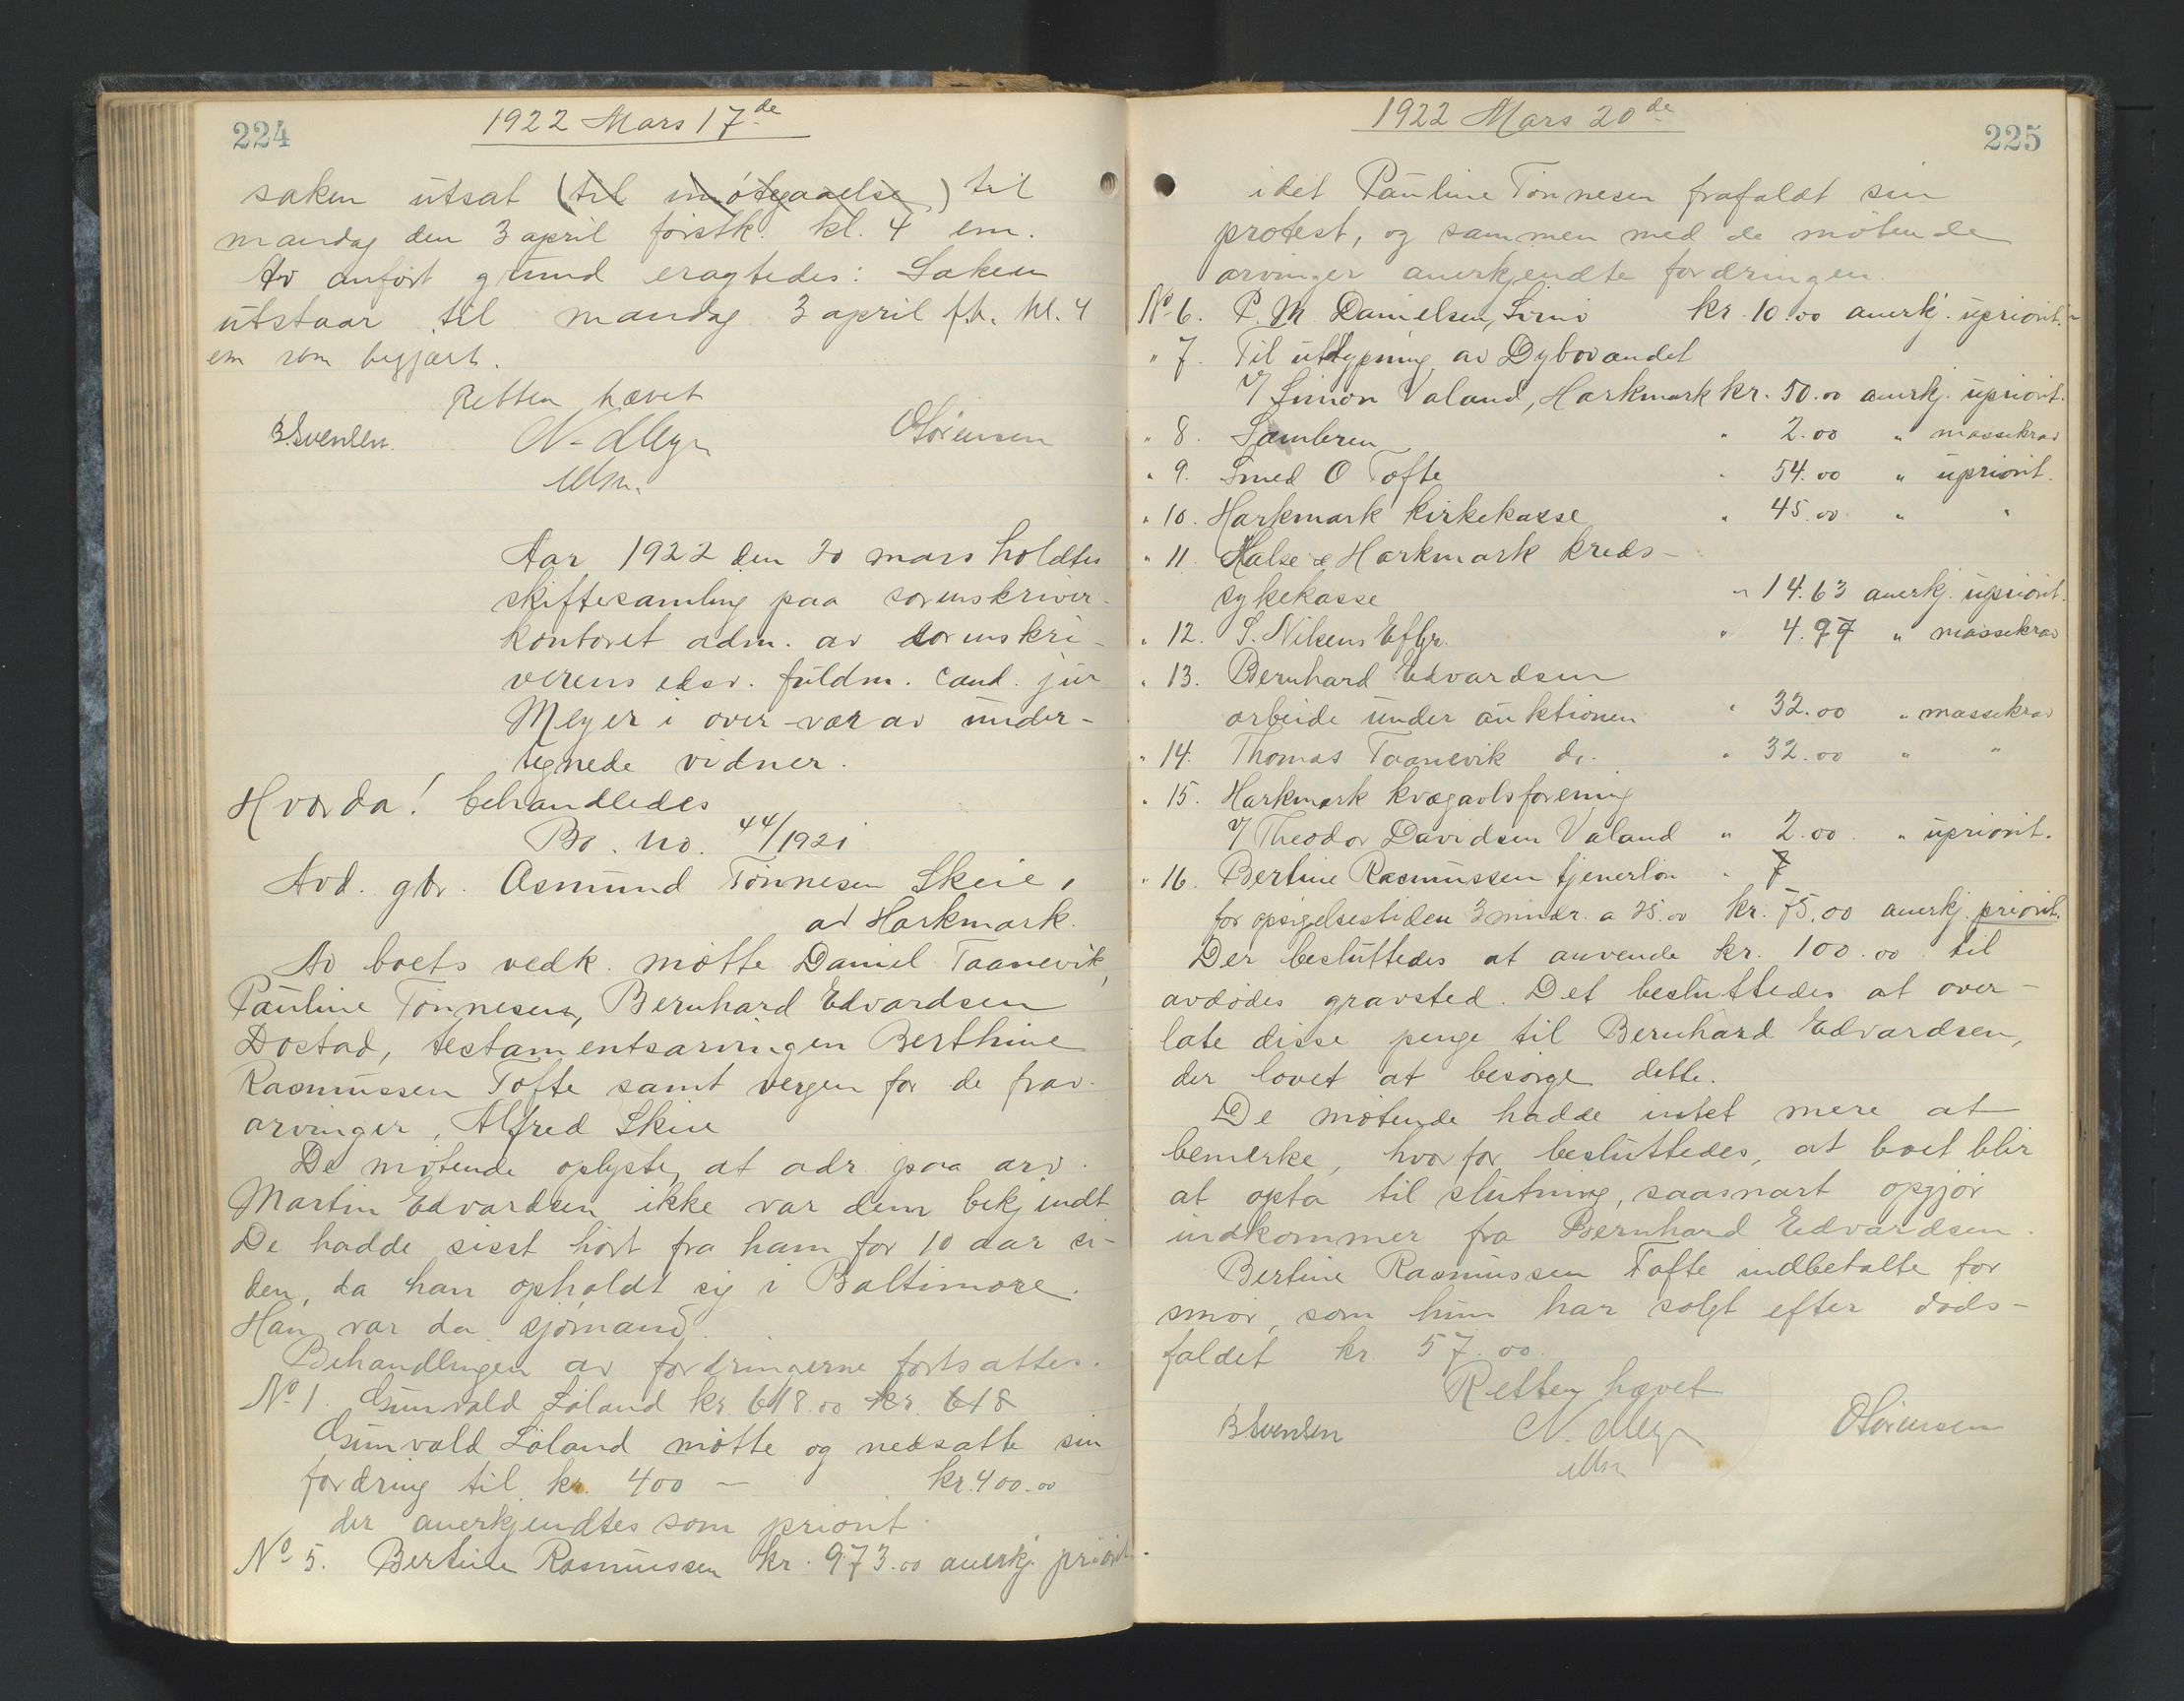 224
1922 Mars 17de
saken utsat (til imøtegaaelse) til
mandag den 3 april førstk. kl. 4 em.
Av anført grund eragtedes: Saken
utstaar til mandag 3 april f.k. kl. 4
em som begjært.
Retten hævet
B. Svensen. N. Meyer OSørensen
Aar 1922 den 20 mars holdtes
skiftesamling paa sorenskriver-
kontoret adm. av sorenskri-
verens edsv. fuldm. cand. jur
Meyer i over-vær av under-
tegnede vidner.
Hvorda! behandledes
Bo. no. 44/1921
Avd. gbr. Asmund Tønnesen Skeie,
av Harkmark.
Av boets vedk. møtte Daniel Taanevik,
Pauline Tønnesen, Bernhard Edvardsen
Dostad, testamentsarvingen Berthine
Rasmussen Tofte samt vergen for de frav.
arvinger, Alfred Skeie
De møtende oplyste, at adr. paa arv.
Martin Edvardsen ikke var dem bekjendt
De hadde sisst hørt fra ham for 10 aar si-
den, da han opholdt sig i Baltimore.
Han var da sjømand.
Behandlingen av fordringerne fortsattes.
No 1. Gunvald Løland kr. 618.00 kr. 618
Gunvald Løland møtte og nedsatte sin
fordring til kr. 400 — kr. 400.00
der anerkjendtes som priorit.
No 5. Bertine Rasmussen kr. 973.00 anerkj. priorit.
225
1922 Mars 20de
idet Pauline Tønnesen frafaldt sin
protest, og sammen med de møtende
arvinger anerkjendte fordringen.
No 6. P. M Danielsen, kr. 10.00 anerkj. upriorit.
" 7. Til uttypning av Dybovandet
v/ Simon Valand, Harkmark kr. 50.00 anerkj. upriorit.
" 8. Sambren " 2.00 " massekrav
" 9. Smed O Tofte " 54.00 " upriorit.
" 10. Harkmark kirkekasse " 45.00 " "
" 11. Halse & Harkmark kreds-
sykekasse " 14.63 anerkj. upriorit.
" 12. S. Nilsens Eftflg. " 4.97 " massekrav
" 13. Bernhard Edvardsen
arbeide under auktionen " 32.00 " massekrav
" 14. Thomas Taanevik do. " 32.00 " "
" 15. Harkmark kvægavlsforening
v/ Theodor Davidsen Valand " 2.00 " upriorit.
" 16. Bertine Rasmussen tjenerløn " 7
for opsigelsestiden 3 mndr. a 25.00 kr. 75.00 anerkj. priorit.
Der besluttedes at anvende kr. 100.00 til
avdødes gravsted. Det besluttedes at over-
late disse penge til Bernhard Edvardsen,
der lovet at besørge dette.
De møtende hadde intet mere at
bemerke, hvorfor besluttedes, at boet blir
at opta til slutning, saasnart opgjør
indkommer fra Bernhard Edvardsen.
Bertine Rasmussen Tofte indbetalte for
smør, som hun har solgt efter døds-
faldet kr. 57.00.
Retten hævet
B. Svensen N. Meyer OSørensen